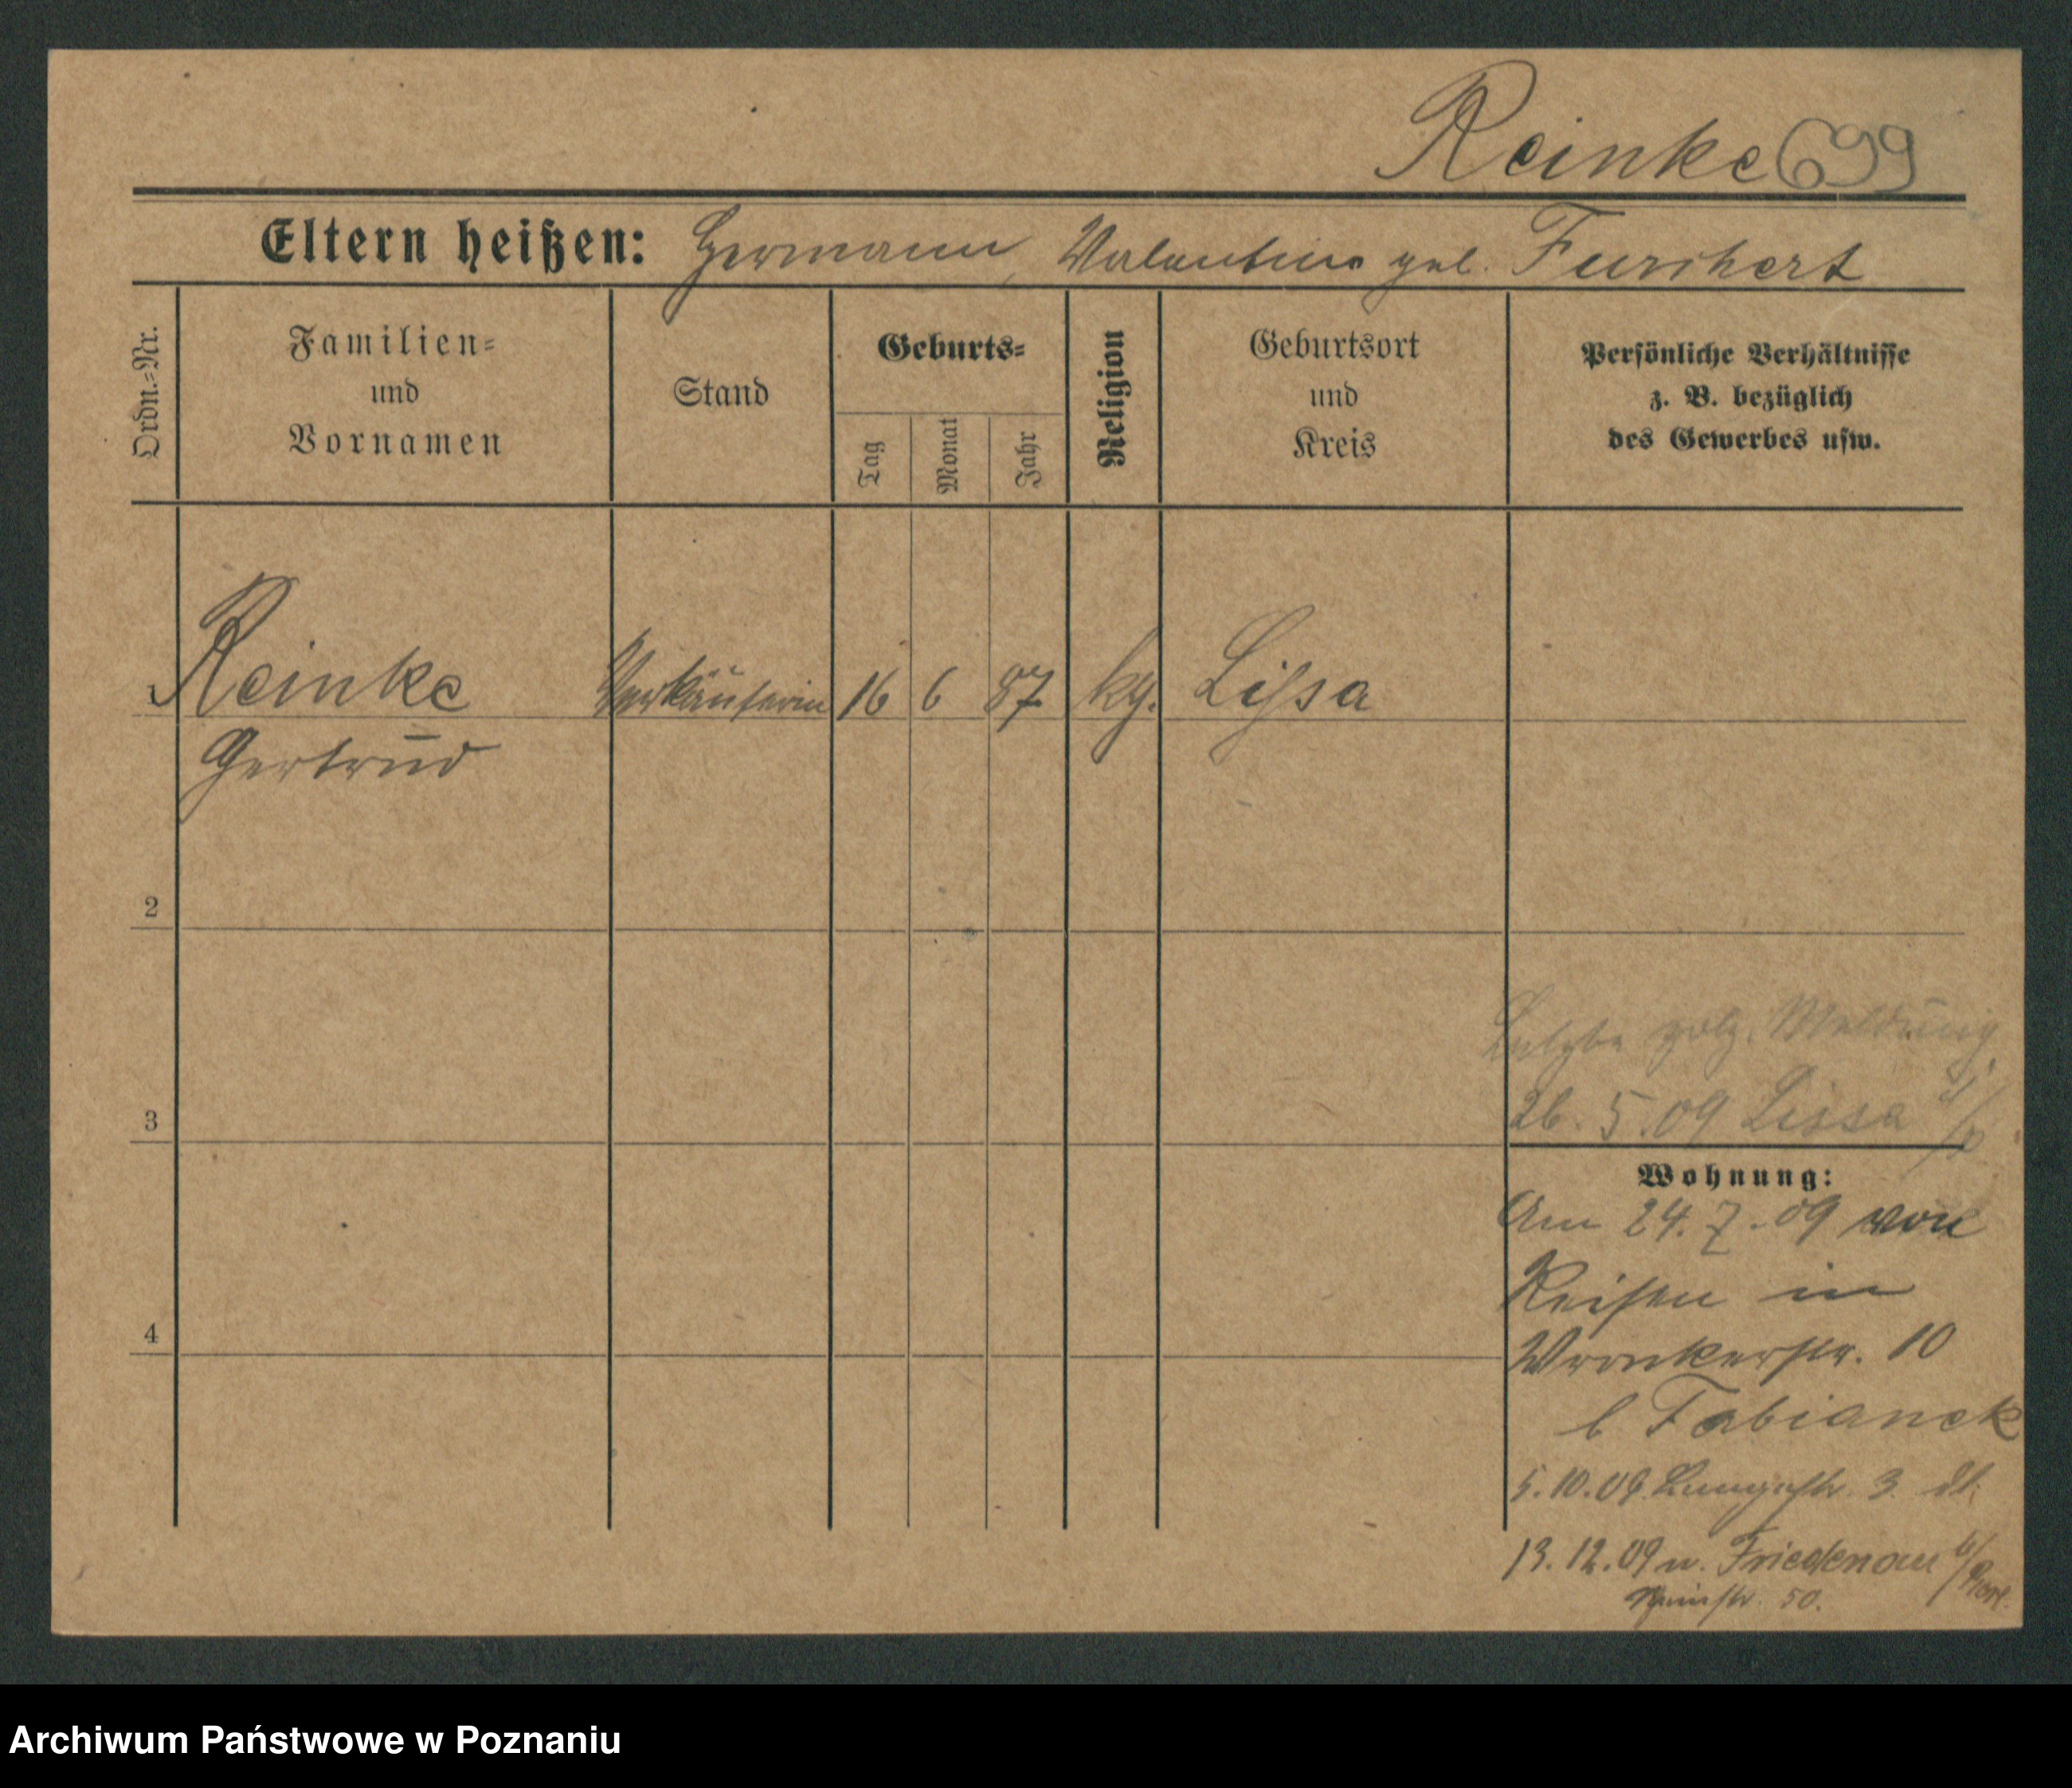 Reinke 699
Eltern heißen: Hermann, Valentine geb. Furchert
Ordn.=Nr.
Familien=
und
Vornamen
Stand
Geburts=
Tag
Monat
Jahr
Religion
Geburtsort
und
Kreis
Persönliche Verhältnisse
z. B. bezüglich
des Gewerbes usw.
1 Reinke Verkäuferin 16 6 87 kg. Lissa
Gertrud
2
Letzte polz. Meldung
26. 5. 09 Lissa
3
Wohnung:
Am 24. 7. 09 von
Reisen in
4
Wronkerstr. 10
b Fabianek
5. 10. 09. Langestr. 3
13. 12. 09 n. Friedenau b/Berl.
50.
Archiwum Państwowe w Poznaniu